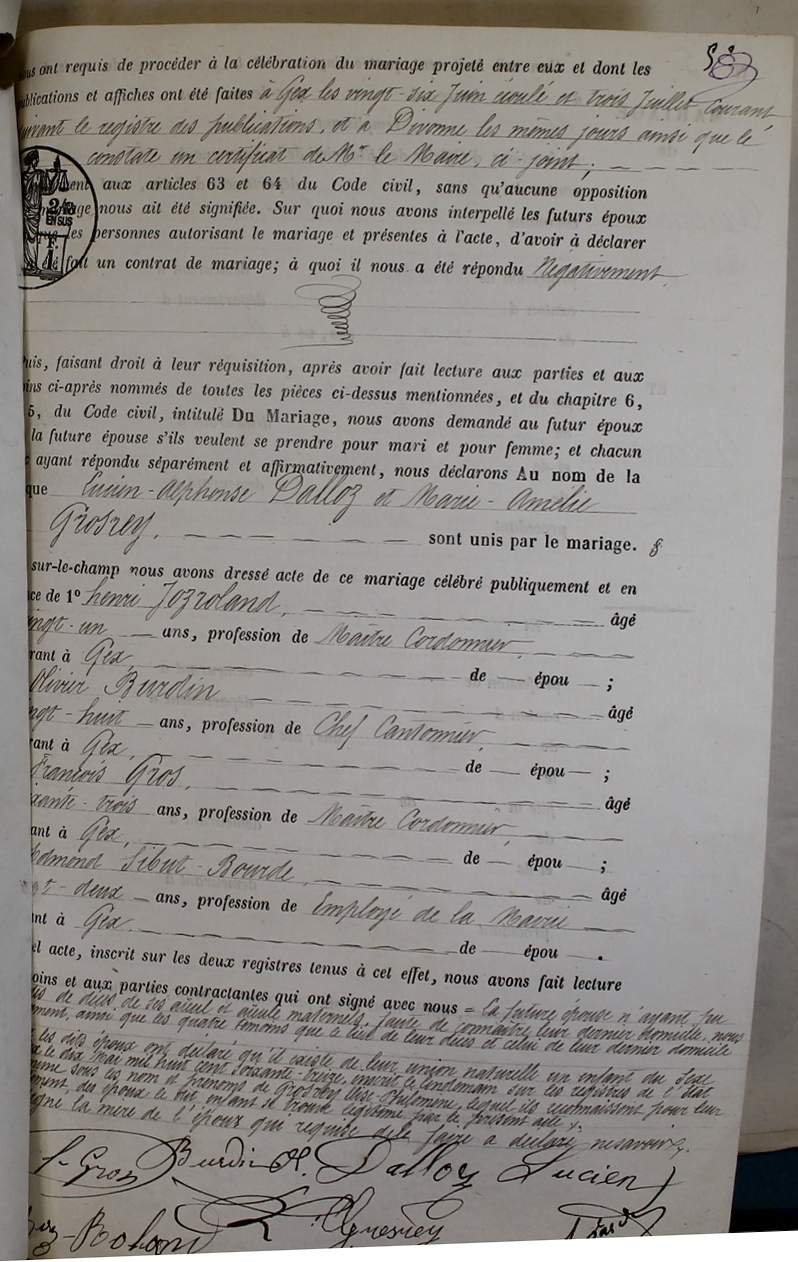 ous ont requis de procéder à la célébration du mariage projeté entre eux et dont les
ublications et affiches ont été faites à Gex les vingt-six Juin écoulé et trois Juillet courant
uivant le registre des publications, et à Divonne les mêmes jours ainsi que le
constate un certificat de Mr le Maire, ci-joint;
ment aux articles 63 et 64 du Code civil, sans qu'aucune opposition
iage nous ait été signifiée. Sur quoi nous avons interpellé les futurs époux
les personnes autorisant le mariage et présentes à l'acte, d'avoir à déclarer
été fait un contrat de mariage; à quoi il nous a été répondu Négativement
2/10
EN SUS
uis, faisant droit à leur réquisition, après avoir fait lecture aux parties et aux
ins ci-après nommés de toutes les pièces ci-dessus mentionnées, et du chapitre 6,
5, du Code civil, intitulé Du Mariage, nous avons demandé au futur époux
la future épouse s'ils veulent se prendre pour mari et pour femme; et chacun
ayant répondu séparément et affirmativement, nous déclarons Au nom de la
que Lucien-Alphonse Dalloz et Marie-Amélie
Grosrey. sont unis par le mariage.
sur-le-champ nous avons dressé acte de ce mariage célébré publiquement et en
ce de 1° henri Jozroland, âgé
ingt-un ans, profession de Maître Cordonnier,
rant à Gex, de épou ;
Olivier Burdin âgé
ngt-huit ans, profession de Chef Cantonnier,
rant à Gex, de épou ;
François Gros, âgé
ixante-trois ans, profession de Maître Cordonnier,
ant à Gex, de épou ;
Edmond Sibut-Bourde, âgé
gt-deux ans, profession de Employé de la Mairie
ant à Gex. de épou .
el acte, inscrit sur les deux registres tenus à cet effet, nous avons fait lecture
oins et aux parties contractantes qui ont signé avec nous = la future épouse n'ayant pu
de décès de ses aïeul et aïeule maternels, faute de connaître leur dernier domicile, nous
ment, ainsi que les quatre témoins que le lieu de leur décès et celui de leur dernier domicile
les dits époux ont déclaré qu'il existe de leur union naturelle un enfant du sexe
le dix mai mil huit cent soixante-treize, inscrit le lendemain sur les registres de l'état
sous les nom et prénoms de Grosrey Philomène, lequel ils reconnaissent pour leur
des époux le dit enfant se trouve légitimé par le présent acte
igné la mère de l'époux qui requise de le faire a déclaré ne savoir.
f. Gros Burdin O. Dalloz Lucien
Roland Grosrey